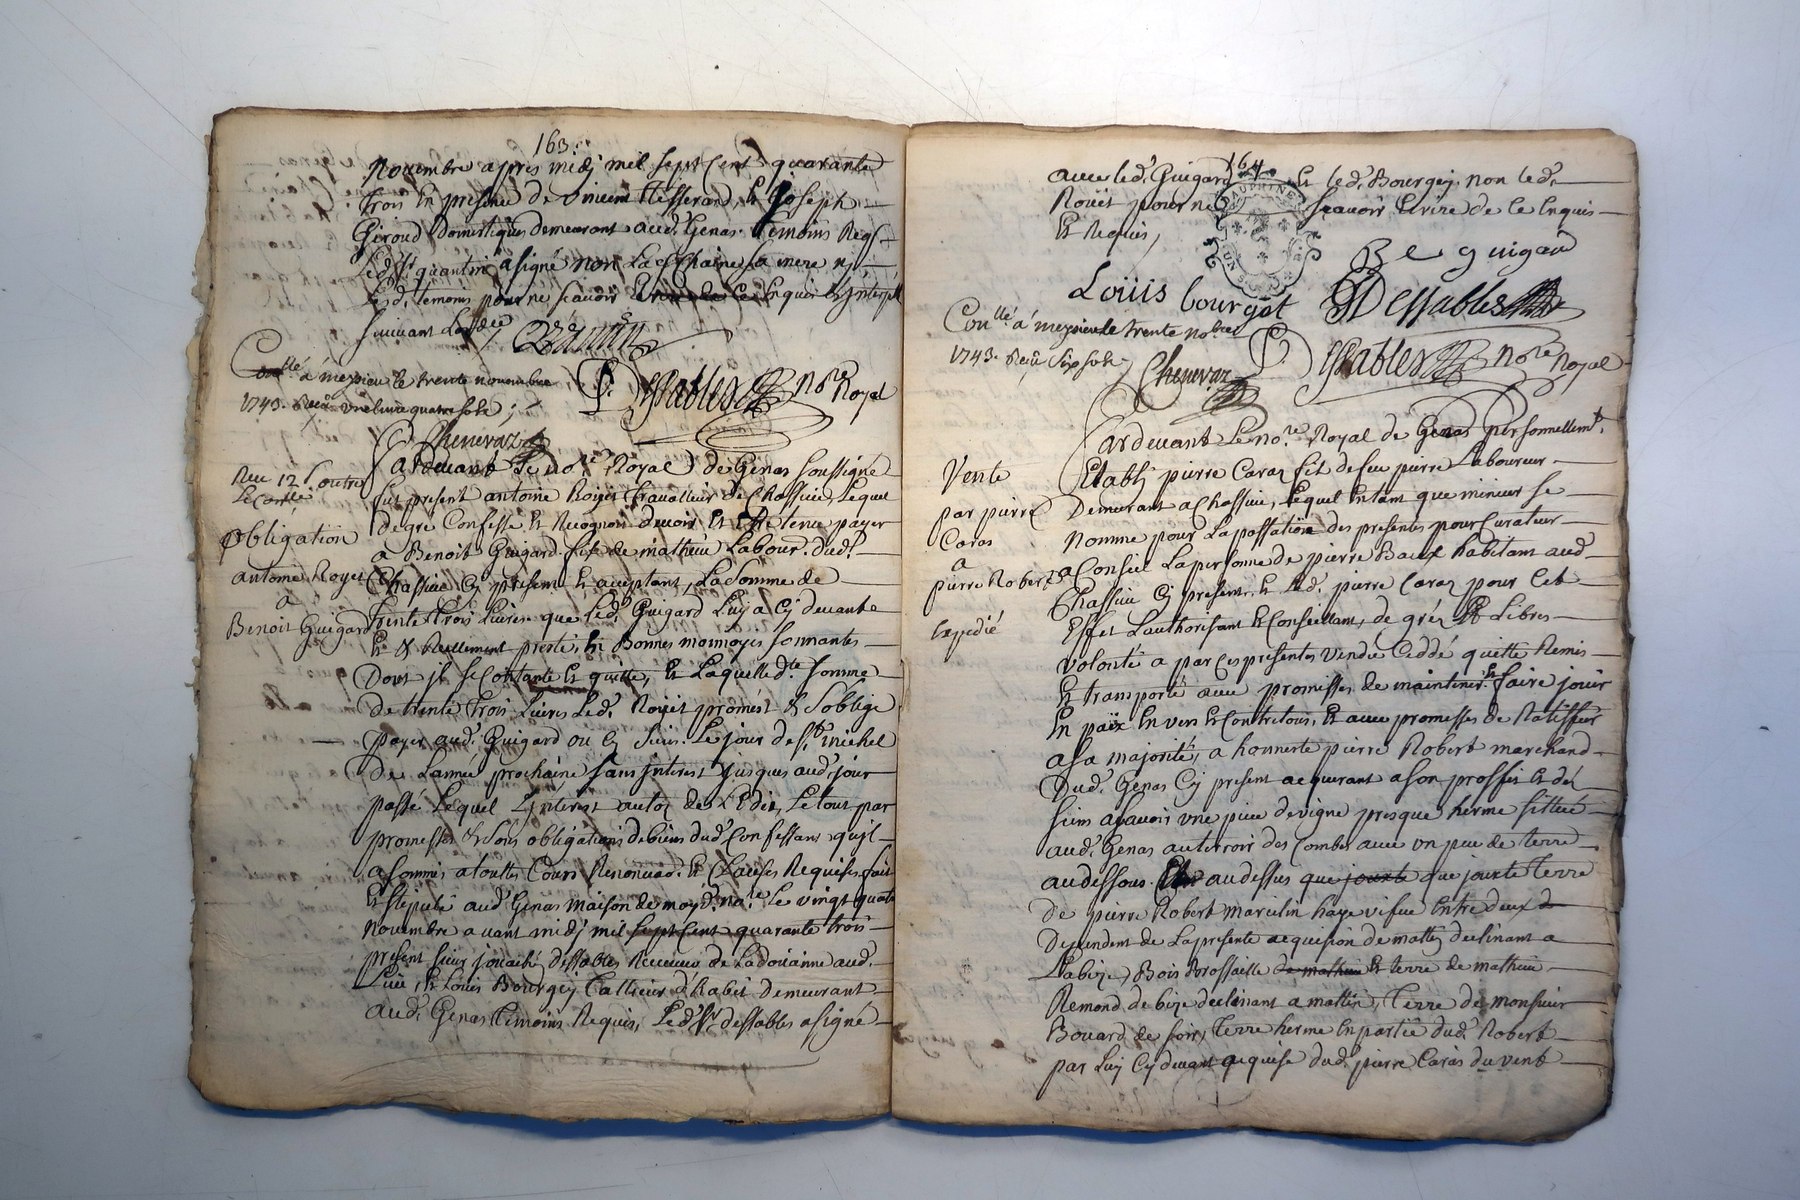 163.
Novembre apres midj mil sept Cent quarante
trois En presence de Vincent Tesserand, Et Joseph
Giroud Domestiques demeurant aud. Genas. temoins Req.
Led. Sr. quantin a signé non La Chaine sa mere nj
Lesd. temoins pour ne scavoir Ecrire de Ce Enquis Et Interp.
suivant Lord.
Conllé a meyzieu le trente novembre
1743. Reçu une livre quatre sols;
Chenevaz
P. Dessables nore Royal
Reçu 12 s. outre
Le Conllé
Obligation
antoine Royet
a
Benoit Guigard
Pardevant Le nore Royal de Genas soussigné
fut present antoine Roijet travailleur de Chassieu, Lequel
de gre Confesse Et Recognoit devoir Et Etre tenu payer
a Benoit Guigard fils de mathieu Labour. dud.
Chassieu Cy present Et aceptant, La somme de
trente trois Livres que Led. Guigard Luy a Cy devant
Et Reellement presté, En Bonnes monnoyes sonnantes
Dont jl se Contante Et quitte, Et Laquelle dte somme
De trente trois Livres Led. Roijet promest Et soblige
payer aud. Guigard ou Es siens Le jour de St. michel
De Lannée prochaine sans jnterest jusques aud. jour
passé Lequel Interest au toz de LEdit, Le tout par
promesses Et sous obligations de biens dud. Confessant qu'jl
a soumis a touttes Cours Renonciao. Et Clauses Requises fait
Et stipulé aud. Genas maison de moyd. no.re Le vingt quatre
Novembre avant midj mil sept Cent quarante trois
present sieur dessables Receveur de La doüanne aud.
Lieu, Et Louis Bourgey Tallieur d'habit Demeurant
aud. Genas Temoins Requis, Led. Sr. dessables a signé
164
avec led. Guigard Et led. Bourgey non led.
Roüet pour ne scavoir Ecrire de Ce Enquis
Et Requis,
Be guigard
Loüis bourgot Dessables
Conllé a meyzieu le trente nobre
1743. Reçu six sols;
Chenevaz
P Dessables nore Royal
Vente
par pierre
Caras
a
pierre Robert
Expedié
Pardevant Le nore Royal de Genas personnellemt.
Etablj pierre Caraz fil de feu pierre Laboureur
Demeurant a Chassieu, Lequel En tant que mineur se
nomme pour La passation des presentes pour Curateur
a Conseil La personne de pierre Baux habitant aud.
Chassieu Cy present, Et Led. pierre Caraz pour Cet
Effet Lauthorisant Et Conseillant, de gré Et Libres
volonté a par Ces presentes vendu Ceddé quitté Remis
Et transporté avec promesses de maintenir Et faire jouir
En paix En vers Et Contre tous, Et avec promesses de Ratiffier
a sa majorité, a honneste pierre Robert marchand
Dud. Genas Cy present aequerant a son proffit Et des
siens a scavoir une piece de vigne presque herme sittuée
aud. Genas au terroir des Combes avec un peu de terre
audessous Et audessus que jouxte que jouxte Terre
De pierre Robert marcelin haye vifve Entre deux
Dependent de La presente aequision de mattin declinant a
Labize, Bois Brossaille de mathieu Et terre de mathieu
Remond de bize declinant a mattin, Terre de monsieur
Bouard de soir, Terre herme En partie dud. Robert
par Luy Cy devant aequise dud. pierre Caras du vent